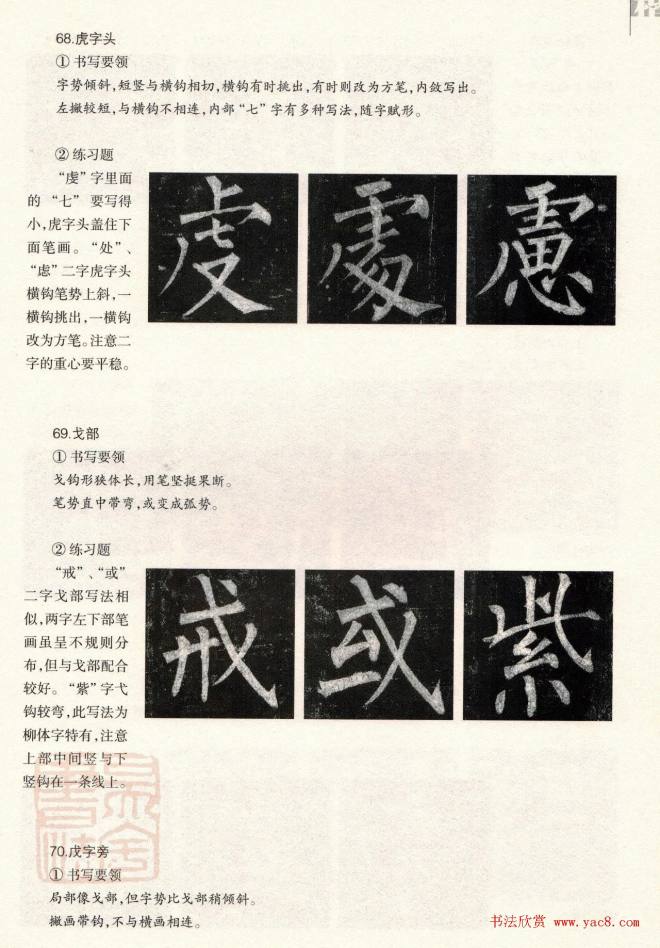 68.虎字头
① 书写要领
字势倾斜，短竖与横钩相切，横钩有时挑出，有时则改为方笔，内敛写出。
左撇较短，与横钩不相连，内部“七”字有多种写法，随字赋形。
② 练习题
“虔”字里面
的“七”要写得
小，虎字头盖住下
面笔画。“处”、
“虑”二字虎字头
横钩笔势上斜，一
横钩挑出，一横钩
改为方笔。注意二
字的重心要平稳。
虔 處 慮
69.戈部
① 书写要领
戈钩形狭体长，用笔坚挺果断。
笔势直中带弯，或变成弧势。
② 练习题
“戒”、“或”
二字戈部写法相
似，两字左下部笔
画虽呈不规则分
布，但与戈部配合
较好。“紫”字弋
钩较弯，此写法为
柳体字特有，注意
上部中间竖与下
竖钩在一条线上。
戒 或 紫
70.戊字旁
① 书写要领
局部像戈部，但字势比戈部稍倾斜。
撇画带钩，不与横画相连。
书法欣赏 www.yac8.com